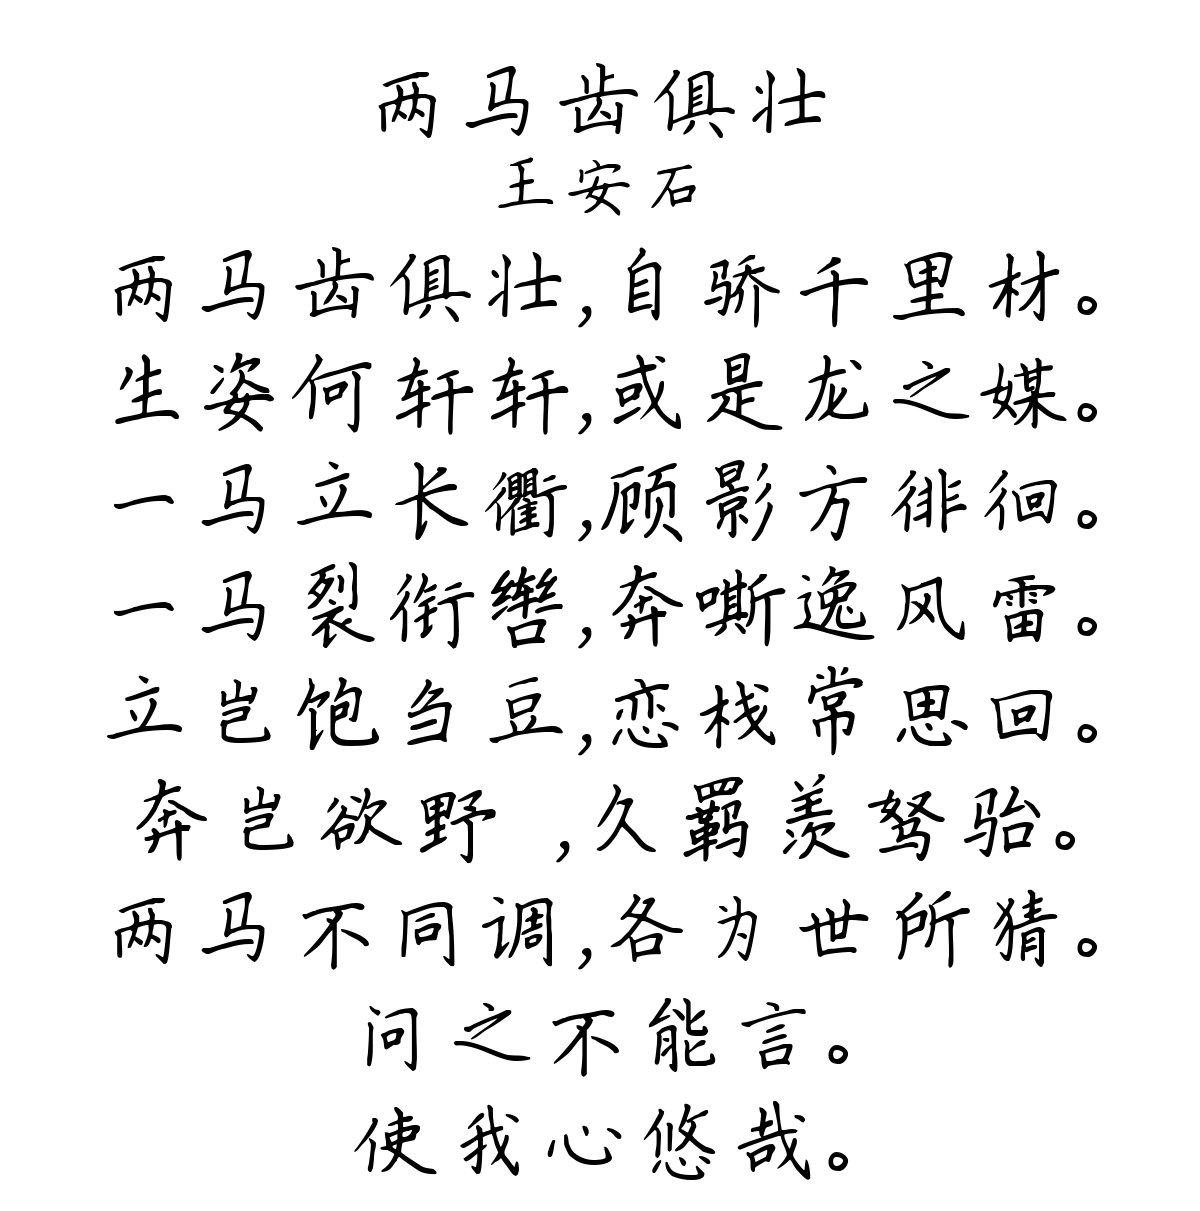 两马齿俱壮
王安石
两马齿俱壮,自骄千里材。
生姿何轩轩,或是龙之媒。
一马立长衢,顾影方徘徊。
一马裂衔辔,奔嘶逸风雷。
立岂饱刍豆,恋栈常思回。
奔岂欲野 ,久羁羡驽骀。
两马不同调,各为世所猜。
问之不能言。
使我心悠哉。